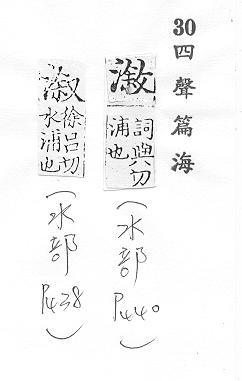 30 四聲篇海
漵
詞與切
浦也
(水部 P440)
溆
徐呂切
水浦也
(水部 P438)